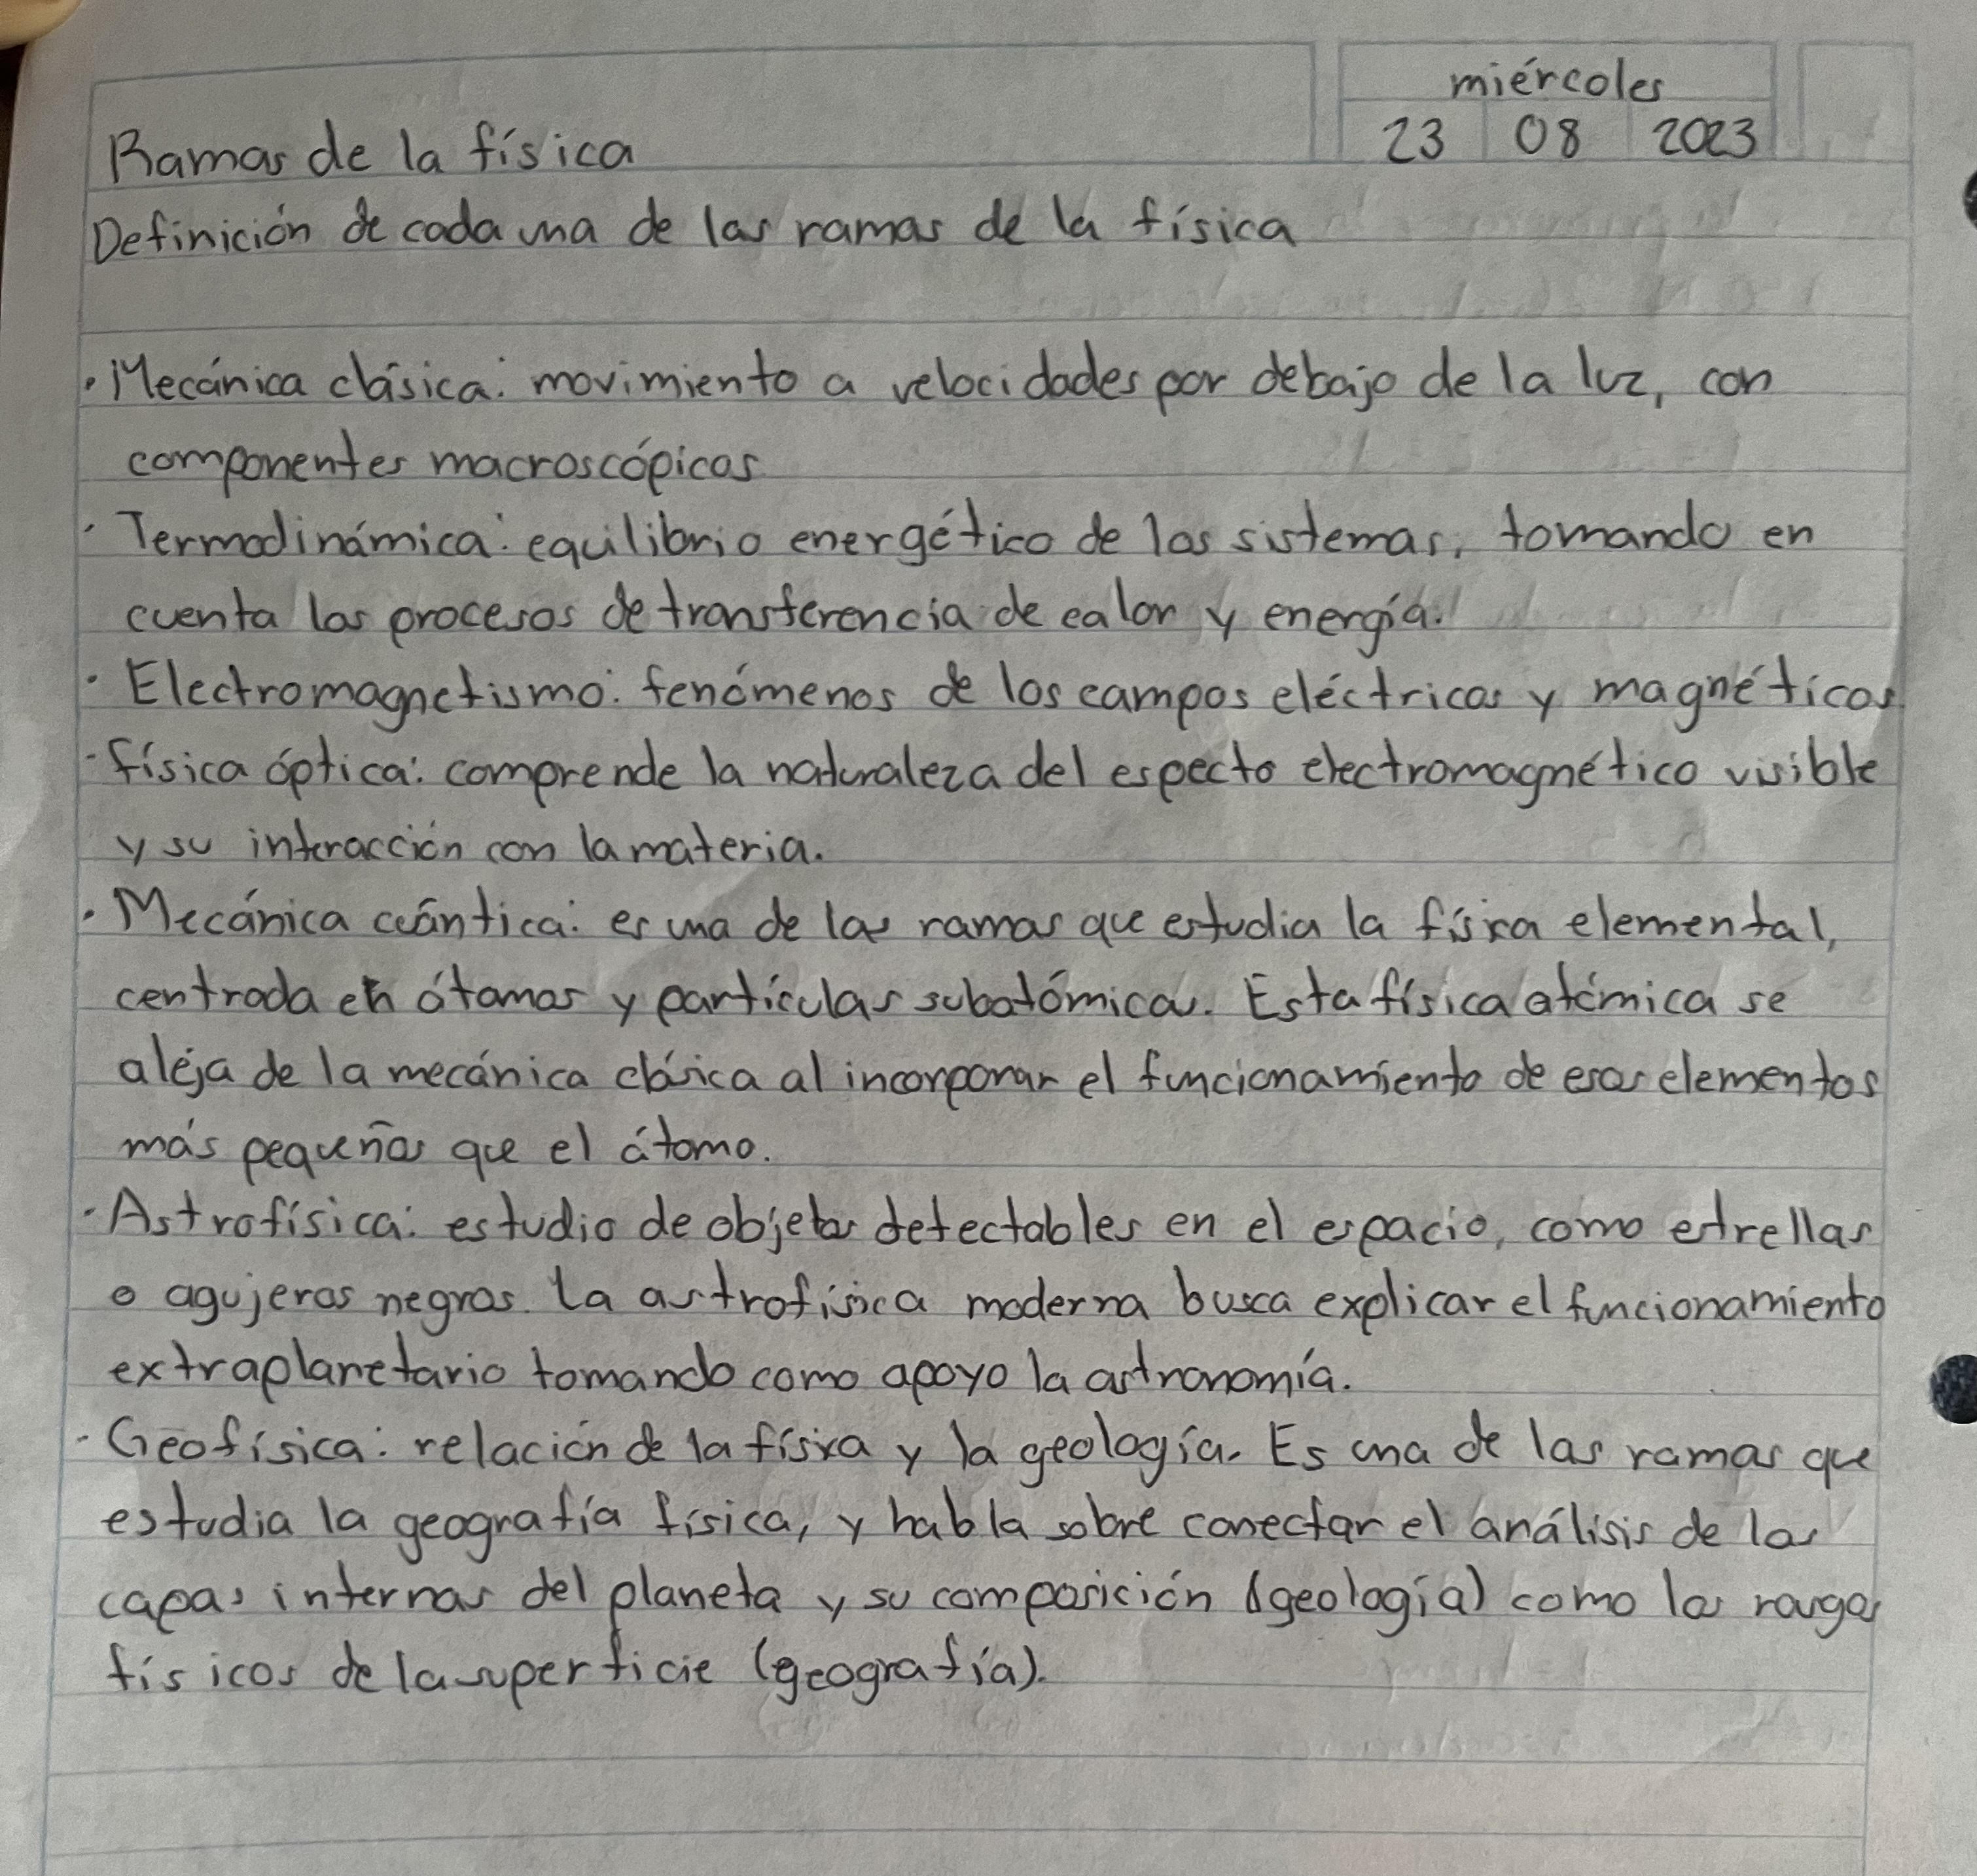 miércoles
23 08 2023
Ramas de la física
Definición de cada una de las ramas de la física
• Mecánica clásica: movimiento a velocidades por debajo de la luz, con
componentes macroscópicos
• Termodinámica: equilibrio energético de los sistemas, tomando en
cuenta los procesos de transferencia de calor y energía.
• Electromagnetismo: fenómenos de los campos eléctricos y magnéticos
• física óptica: comprende la naturaleza del especto electromagnético visible
y su interacción con la materia.
• Mecánica cuántica: es una de las ramas que estudia la física elemental,
centrada en átomos y partículas subatómicas. Esta física atómica se
aleja de la mecánica clásica al incorporar el funcionamiento de esos elementos
más pequeños que el átomo.
• Astrofísica: estudio de objetos detectables en el espacio, como estrellas
o agujeros negros. La astrofísica moderna busca explicar el funcionamiento
extraplanetario tomando como apoyo la astronomía.
• Geofísica: relación de la física y la geología. Es una de las ramas que
estudia la geografía física, y habla sobre conectar el análisis de las
capas internas del planeta y su composición (geología) como los rasgos
físicos de la superficie (geografía).